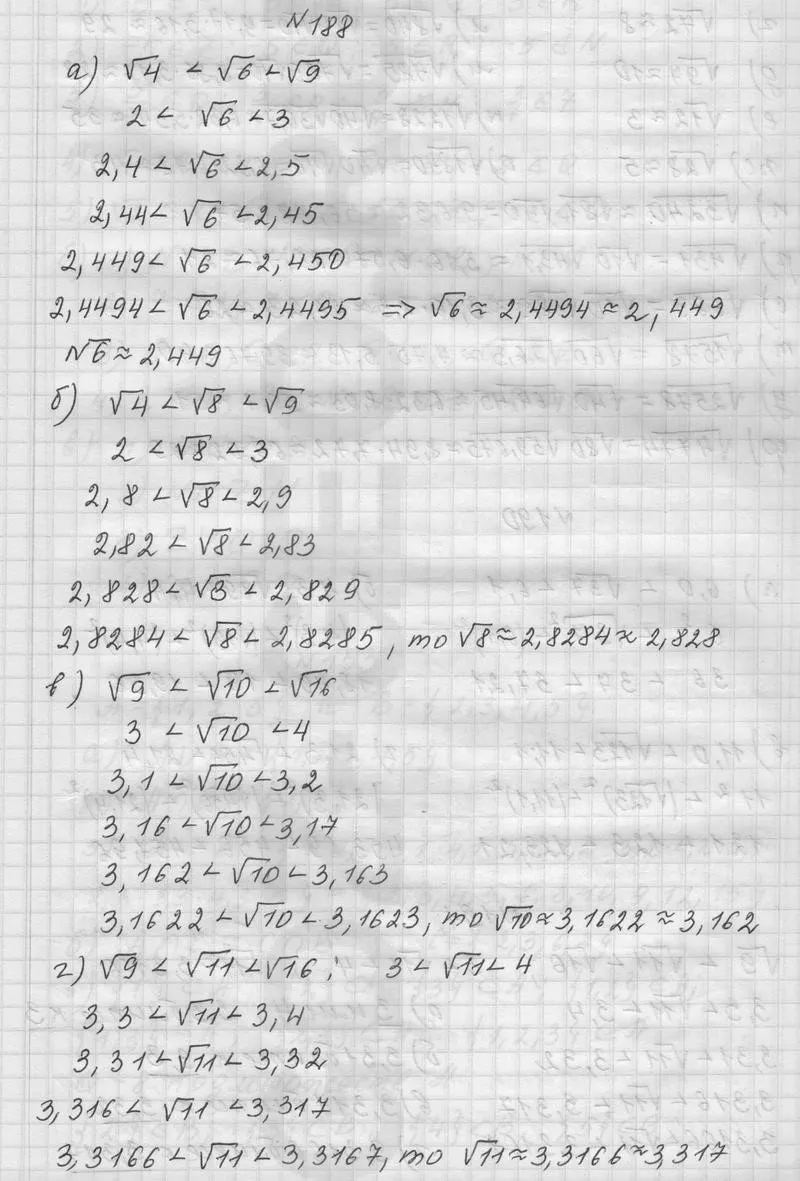 №188
а) √4 < √6 < √9
2 < √6 < 3
2,4 < √6 < 2,5
2,44 < √6 < 2,45
2,449 < √6 < 2,450
2,4494 < √6 < 2,4495 => √6 ≈ 2,4494 ≈ 2,449
√6 ≈ 2,449
б) √4 < √8 < √9
2 < √8 < 3
2,8 < √8 < 2,9
2,82 < √8 < 2,83
2,828 < √8 < 2,829
2,8284 < √8 < 2,8285, то √8 ≈ 2,8284 ≈ 2,828
в) √9 < √10 < √16
3 < √10 < 4
3,1 < √10 < 3,2
3,16 < √10 < 3,17
3,162 < √10 < 3,163
3,1622 < √10 < 3,1623, то √10 ≈ 3,1622 ≈ 3,162
г) √9 < √11 < √16; 3 < √11 < 4
3,3 < √11 < 3,4
3,31 < √11 < 3,32
3,316 < √11 < 3,317
3,3166 < √11 < 3,3167, то √11 ≈ 3,3166 ≈ 3,317